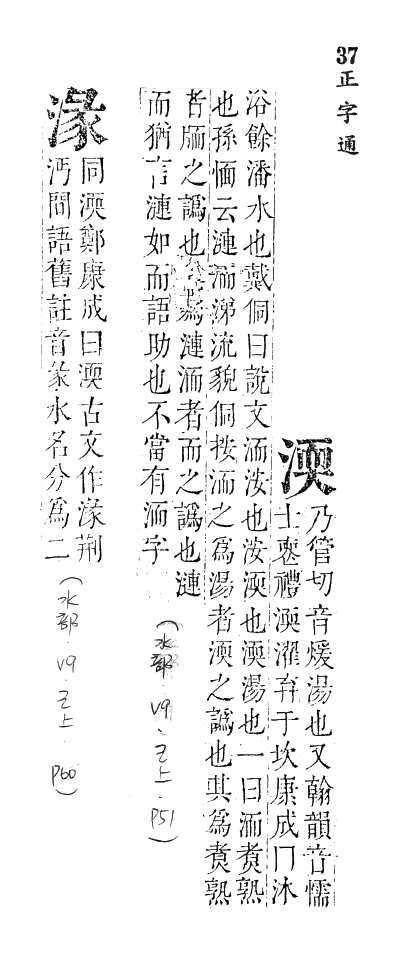 37正字通
渜
乃管切音煖湯也又翰韻音懦
士喪禮渜濯弃于坎康成曰沐
浴餘潘水也戴侗曰說文洏洝也洝渜也渜湯也一曰洏煑熟
也孫愐云漣洏涕流貌侗按洏之爲湯者渜之譌也其爲煑熟
者胹之譌也爲漣洏者而之譌也漣
而猶言漣如而語助也不當有洏字
(水部.V9.巳上.P51)
湪
同渜鄭康成曰渜古文作湪荆
沔間語舊註音彖水名分爲二
(水部.V9.巳上.P60)